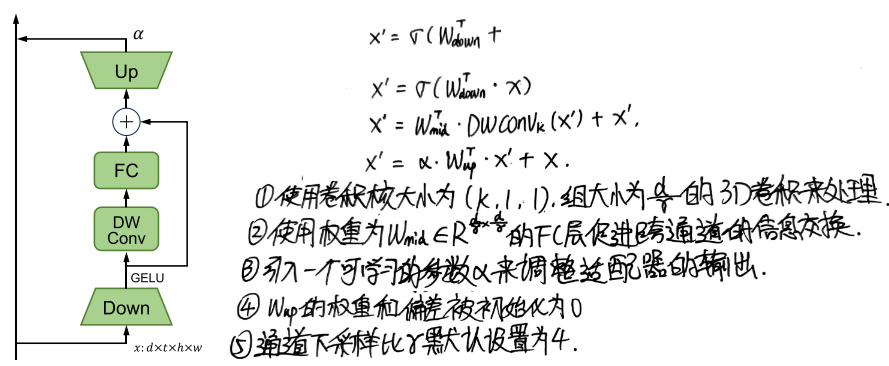 α
Up
+
FC
DW
Conv
GELU
Down
x: d×t×h×w
x' = σ(W_down^T +
x' = σ(W_down^T · x)
x' = W_mid^T · DWConv_k(x') + x',
x' = α · W_up^T · x' + x.
①使用卷积核大小为 (k,1,1),组大小为 d/γ 的 3D卷积来处理.
②使用权重为W_mid∈R^{d/γ × d/γ}的FC层促进跨通道的信息交换.
③引入一个可学习的参数α来调整适配器的输出.
④ W_up的权重和偏差被初始化为0
⑤通道下采样比γ默认设置为4.